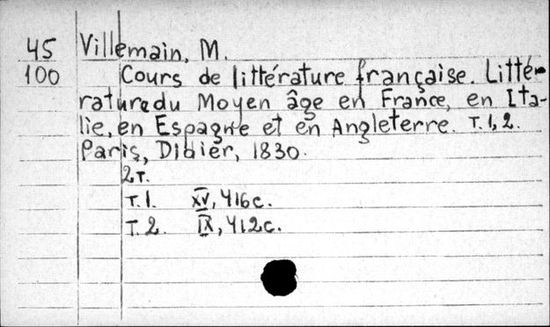 45 Villemain, M.
100 Cours de littérature française. Litté-
rature du Moyen âge en France, en Ita-
lie, en Espagne et en Angleterre. T. 1, 2.
Paris, Didier, 1830.
2т.
T. 1. XV, 416 c.
T. 2. IX, 412 c.